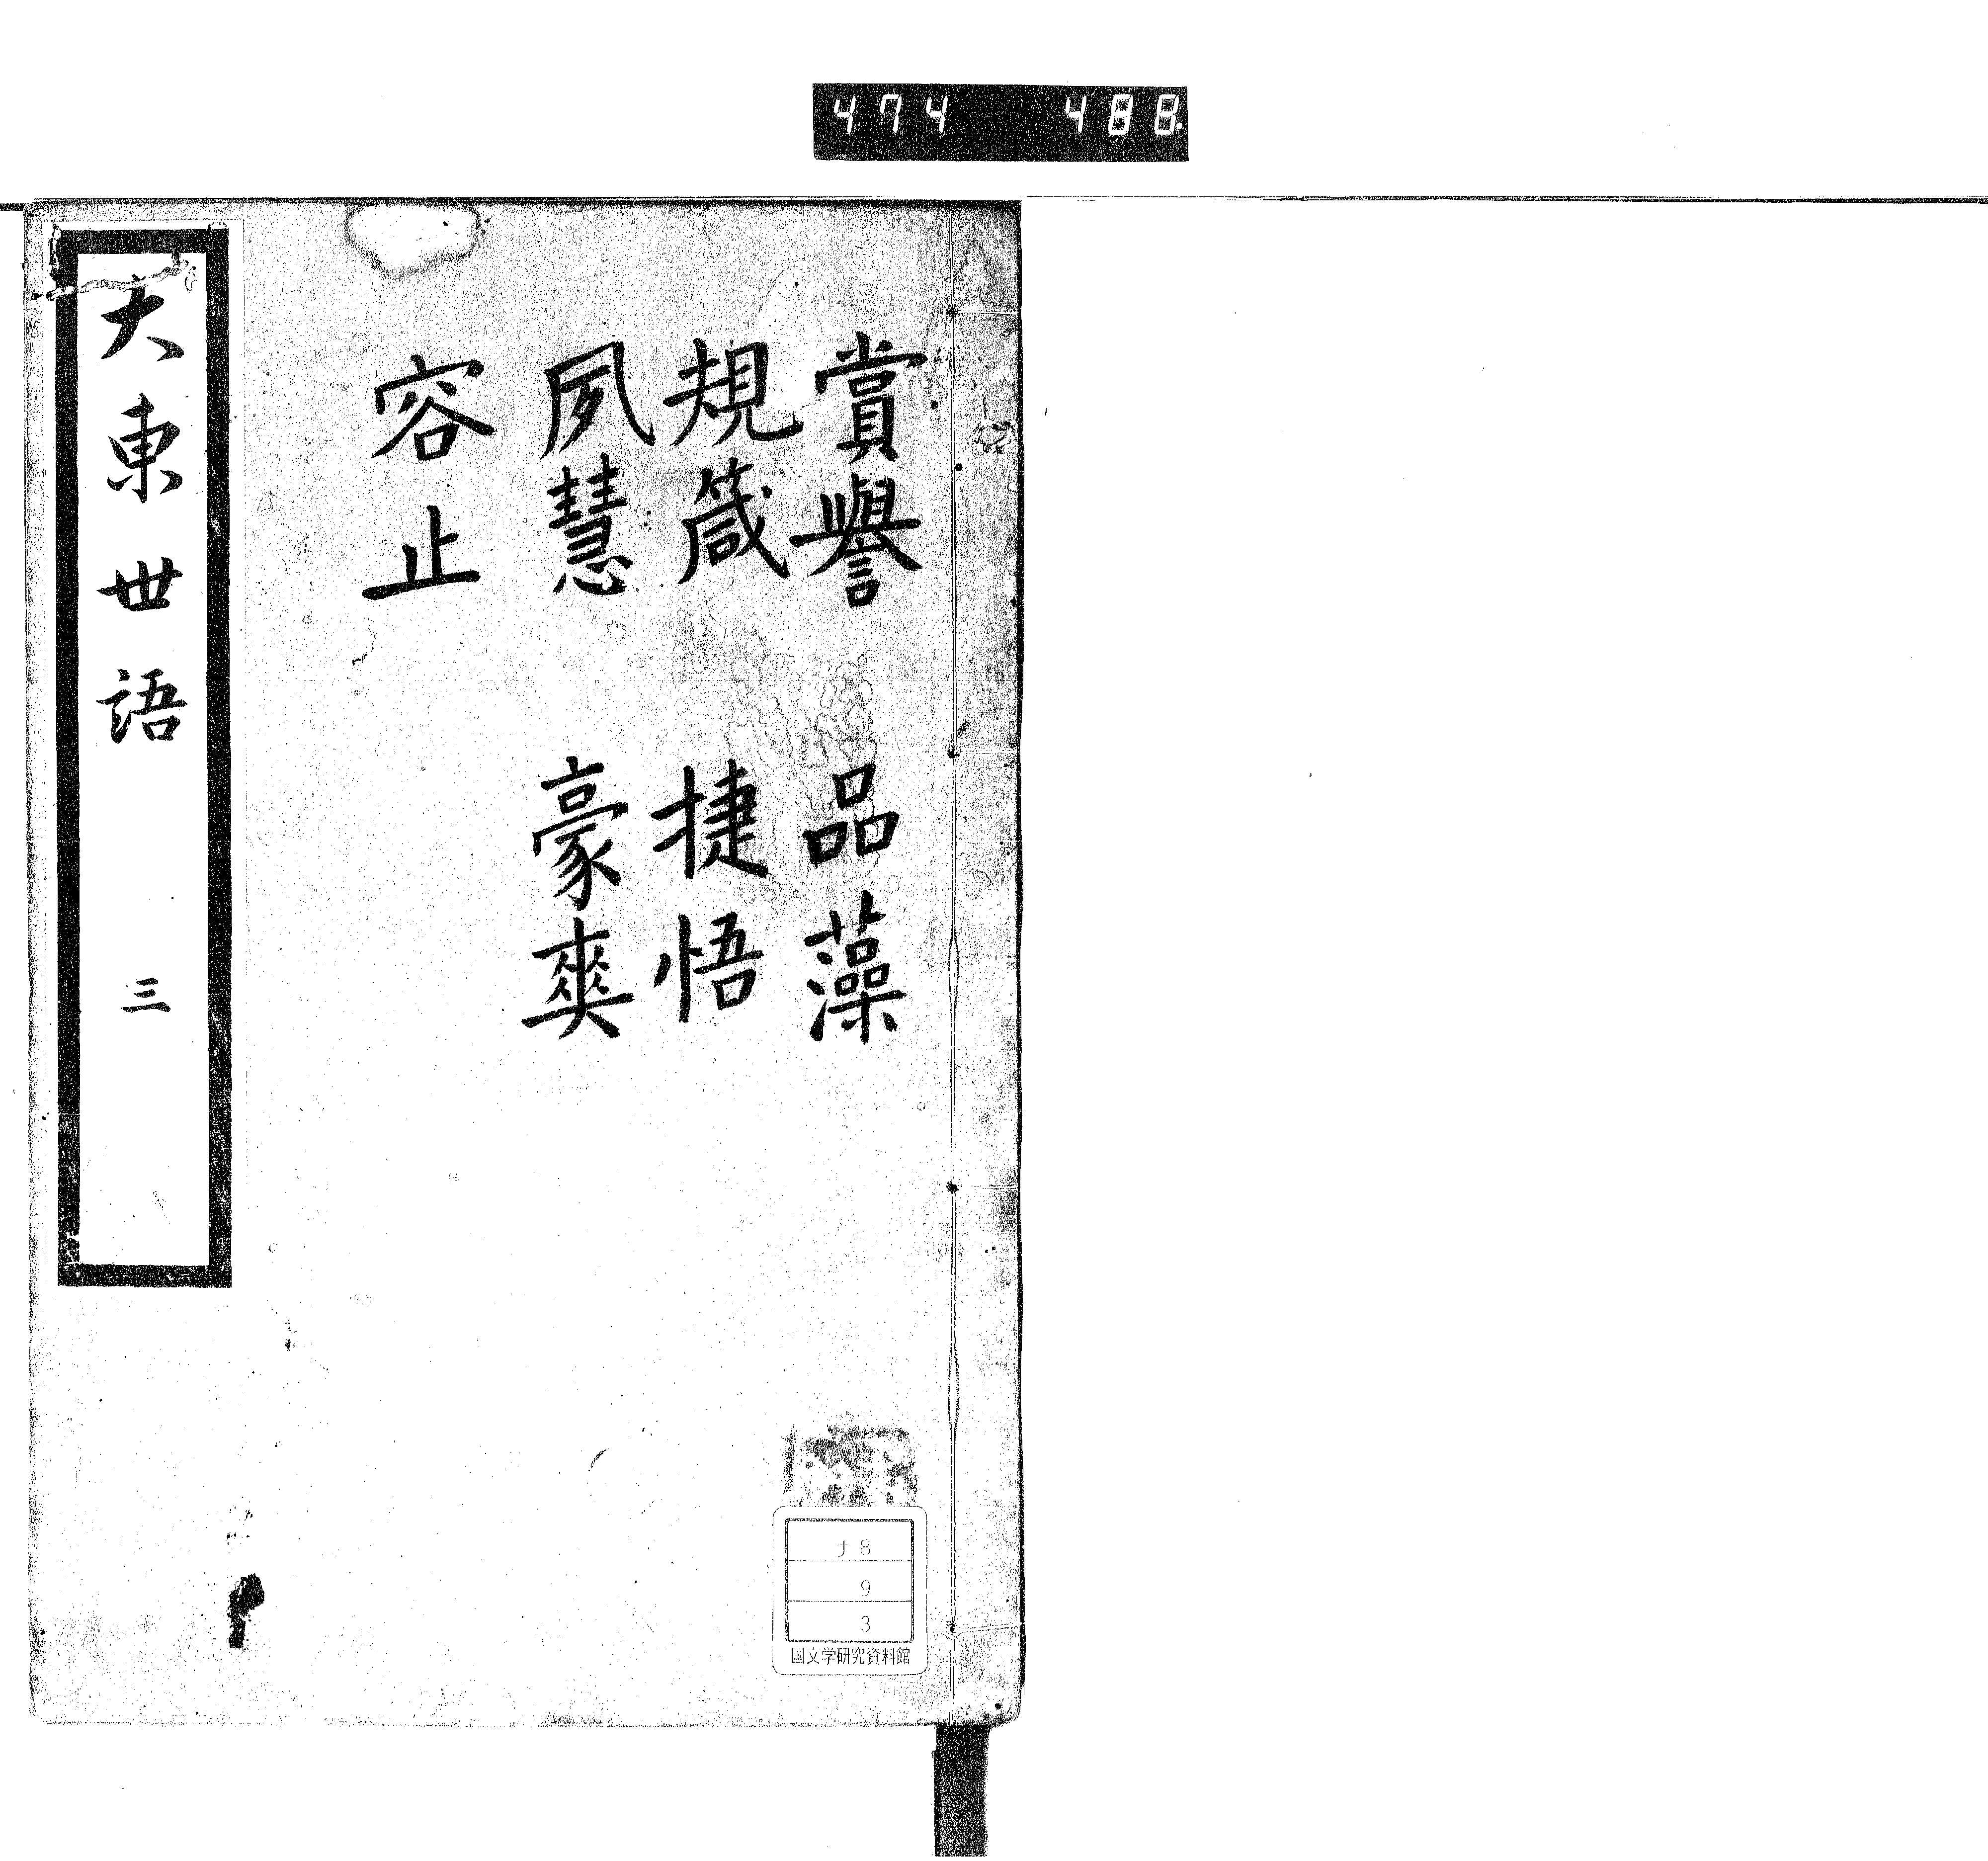 474 488.
賞譽 品藻
規箴 捷悟
夙慧 豪爽
容止
大東世語 三
ナ8
9
3
国文学研究資料館